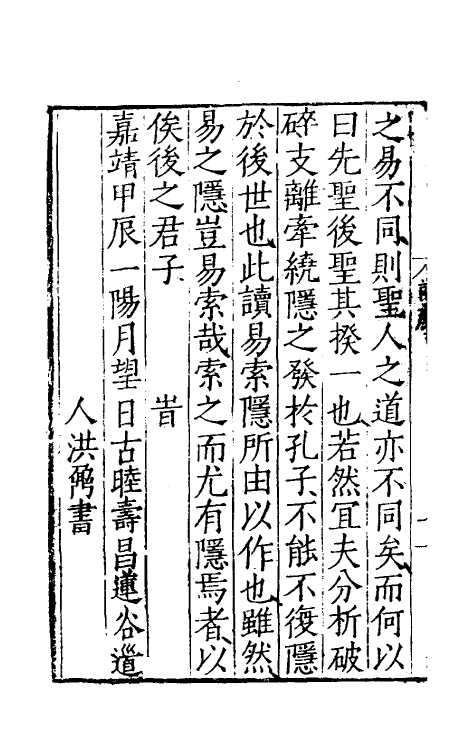 之易不同則聖人之道亦不同矣而何以
曰先聖後聖其揆一也若然宜夫分析破
碎支離牽繞隱之發於孔子不能不復隱
於後世也此讀易索隱所由以作也雖然
易之隱豈易索哉索之而尤有隱焉者以
俟後之君子　　　　旹
嘉靖甲辰一陽月望日古睦壽昌蓮谷道
人洪鼐書